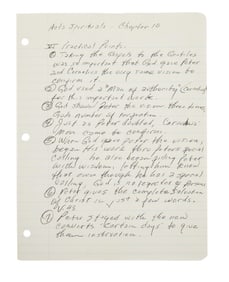 Acts Journals - Chapter 10
II Practical Points:
① Taking the Gospels to the Gentiles
was so important that God gave Peter
and Cornelius the very same vision to
confirm it.
② God used a "Man of authority" Cornelius
for this important work.
③ God showed Peter the vision three times,
God's number of
④ Just as Peter doubted, Cornelius'
men came to confirm.
⑤ When God gave Peter the vision,
His work thru future special
calling, he also began giving Peter
wisdom, letting him know
that even though he has a special
calling, God is no respecter of persons
⑥ Peter gives the complete Salvation
of Christ in just a few words.
⑦ Peter stayed with the new
converts certain days to give
them instruction.